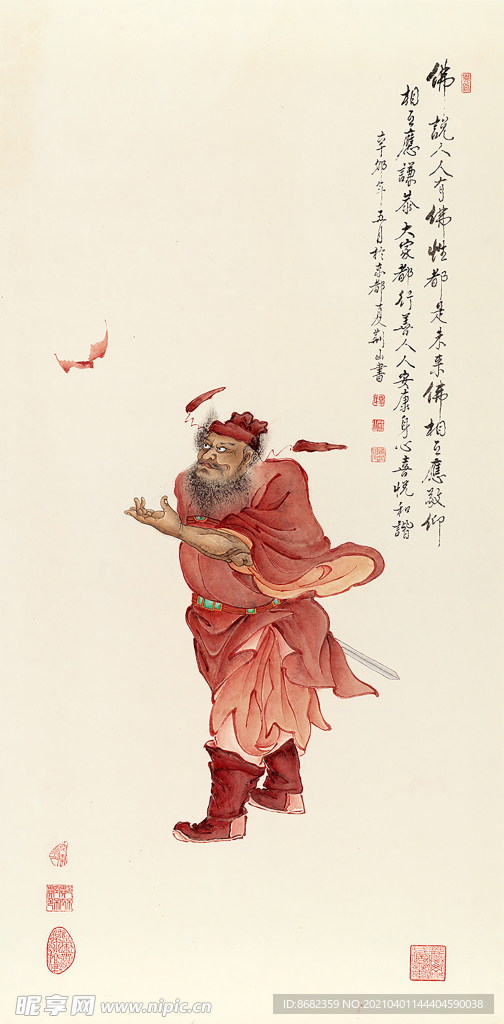 佛說人人有佛性都是未來佛相互應敬仰
相互應謙恭大家都行善人人安康身心喜悅和諧
辛卯年五月於京都夏荊山書
昵享网 www.nipic.cn
ID:8682359 NO:20210401144404590038